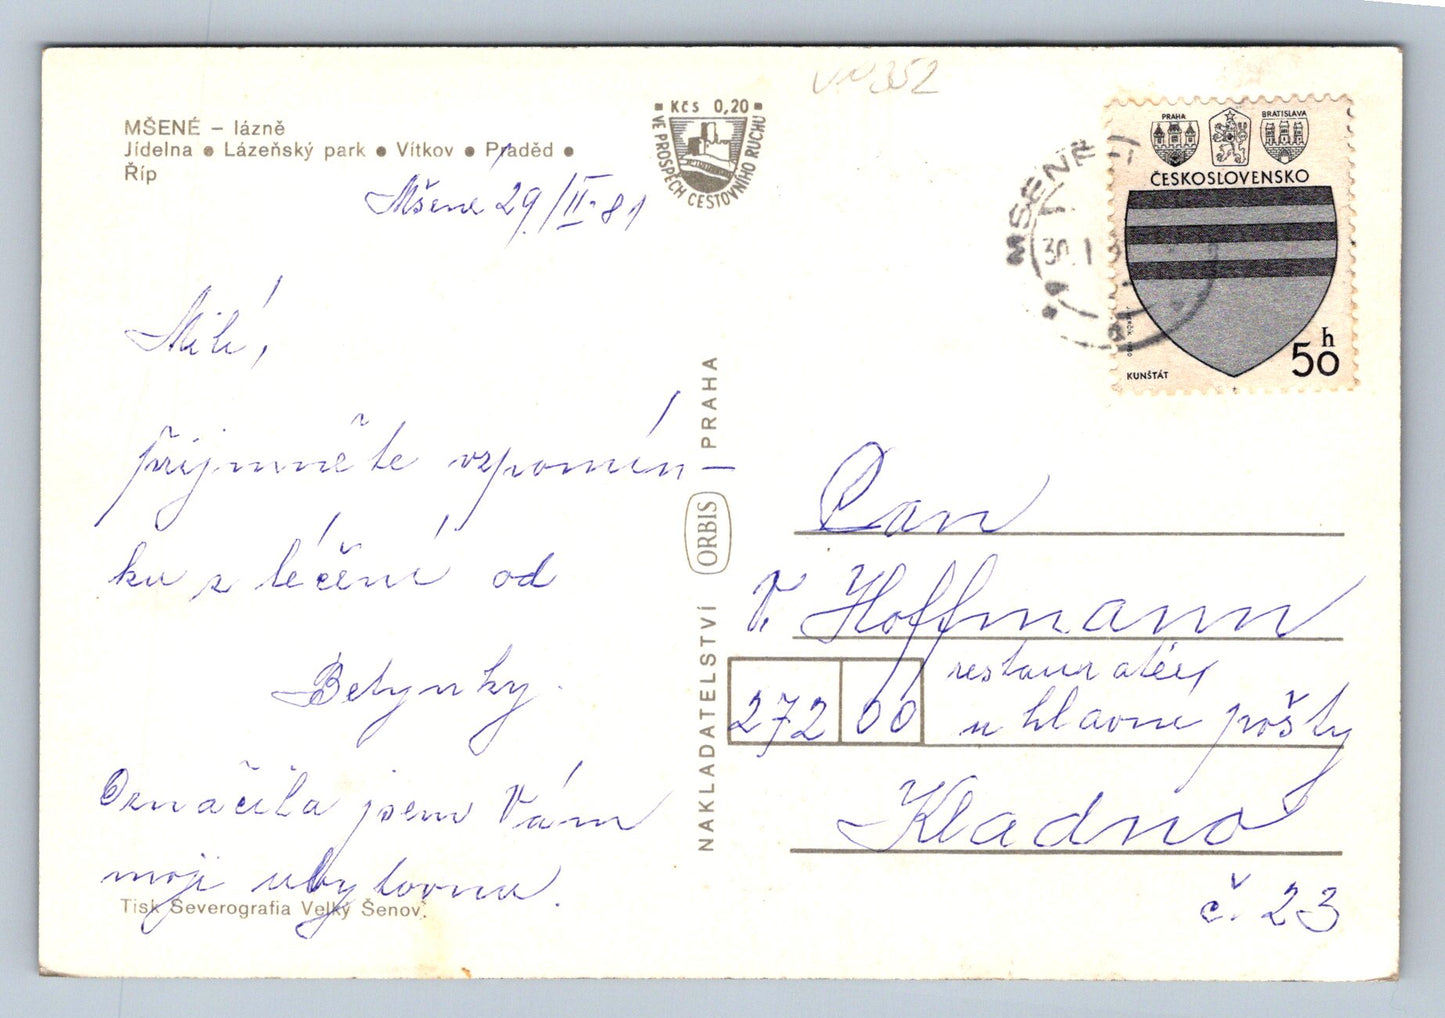 VN352
MŠENÉ – lázně
Jídelna ● Lázeňský park ● Vítkov ● Praděd ●
Říp
Kčs 0,20
VE PROSPĚCH CESTOVNÍHO RUCHU
Mšené 29/II-81
Milí,
přijmněte vzpomín–
ku z léčení od
Betynky.
Označila jsem Vám
moji ubytovnu.
Tisk Severografia Velký Šenov
NAKLADATELSTVÍ ORBIS PRAHA
MŠENÉ
30. I
PRAHA
BRATISLAVA
ČESKOSLOVENSKO
KUNŠTÁT
50 h
Pan
V. Hoffmann
restauratér
272 00
u hlavní pošty
Kladno
č. 23